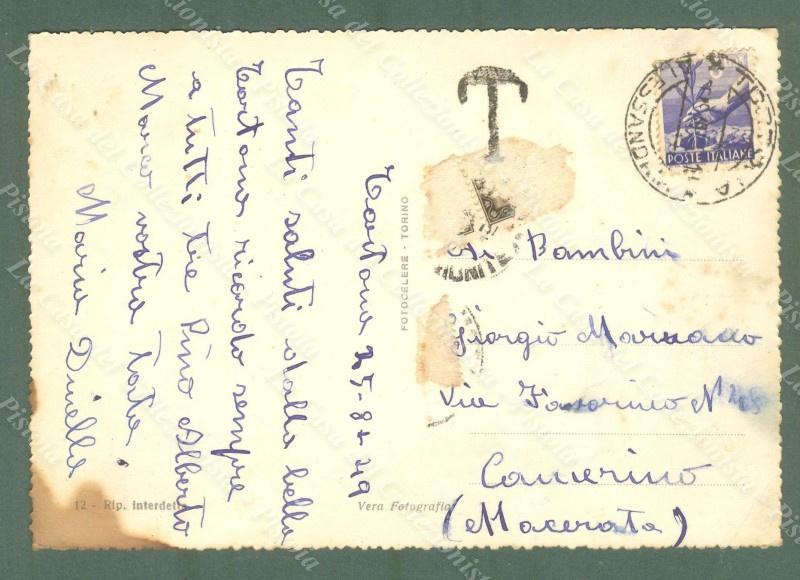 Tortona 25-8-49
Tanti saluti dalla bella
Tortona ricordo sempre
a tutti tre Pino Alberto
Marco vostra
Maria
T
POSTE ITALIANE
FOTOCELERE - TORINO
Ai Bambini
Giorgio
Via Favorino N
Camerino
(Macerata)
12 - Rip. interdetta
Vera Fotografia
La Casa del Collezionista Pistoia